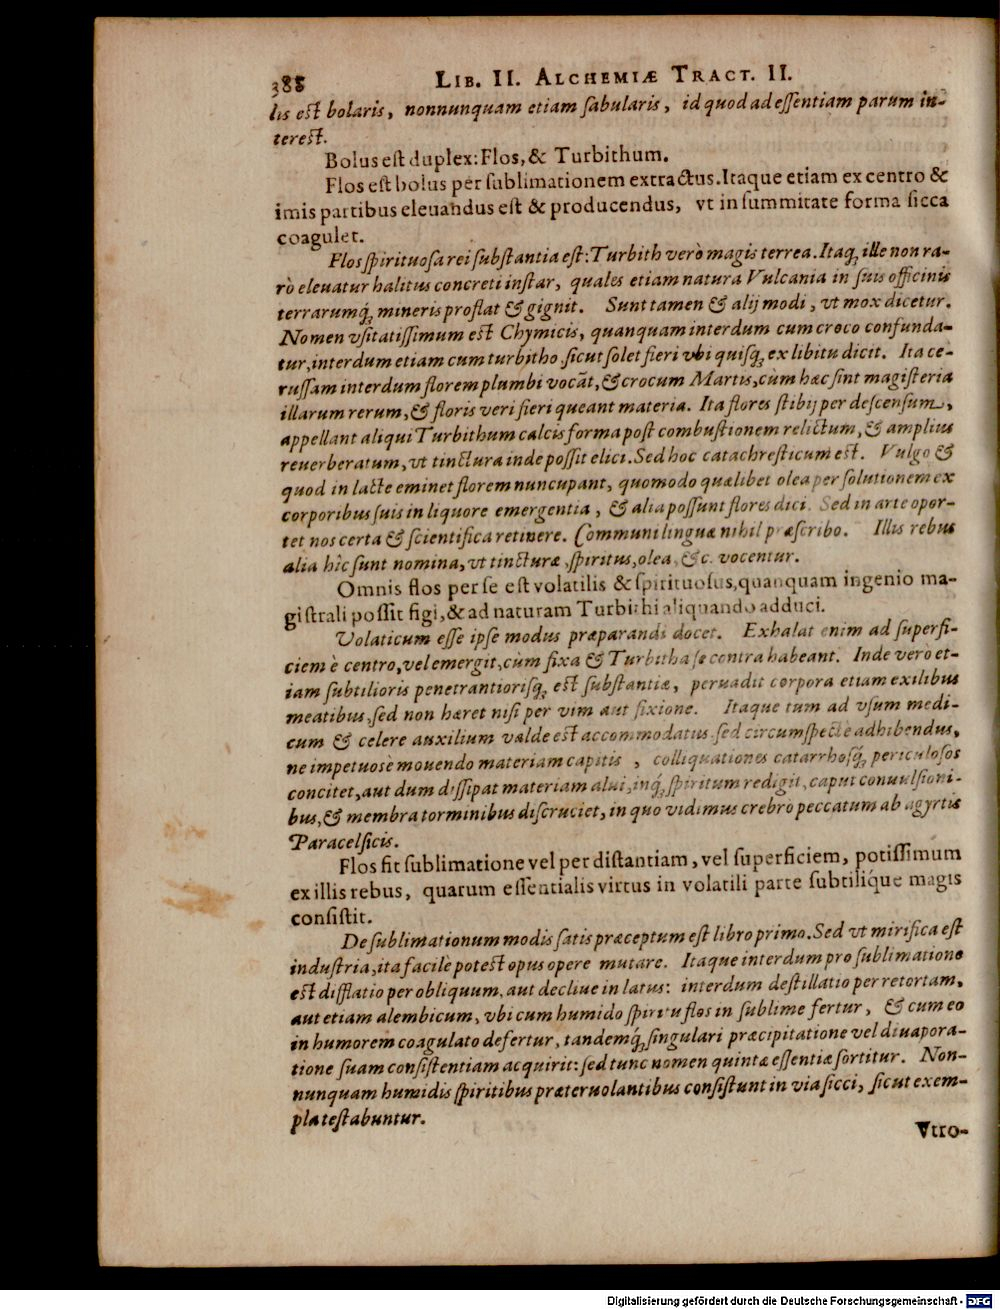 388 LIB. II. ALCHEMIÆ TRACT. II.
lis est bolaris, nonnunquam etiam ſabularis, id quod ad eſſentiam parum in-
tereſt.
Bolus eſt duplex: Flos, & Turbithum.
Flos eſt bolus per ſublimationem extractus. Itaque etiam ex centro &
imis partibus eleuandus eſt & producendus, vt in ſummitate forma ſicca
coagulet.
Flos ſpirituoſa rei ſubſtantia eſt: Turbith verò magis terrea. Itaq; ille non ra-
rò eleuatur halitus concreti inſtar, quales etiam natura Vulcania in ſuis officinis
terrarumq́; mineris proflat & gignit. Sunt tamen & alij modi, vt mox dicetur.
Nomen vſitatiſſimum eſt Chymicis, quanquam interdum cum croco confunda-
tur, interdum etiam cum turbitho. ſicut ſolet fieri vbi quiſq; ex libitu dicit. Ita ce-
ruſſam interdum florem plumbi vocãt, & crocum Martis, cùm hæc ſint magiſteria
illarum rerum, & floris veri fieri queant materia. Ita flores ſtibij per deſcenſum,
appellant aliqui Turbithum calcis forma poſt combuſtionem relictum, & amplius
reuerberatum, vt tinctura inde poſſit elici. Sed hoc catachreſticum eſt. Vulgo &
quod in lacte eminet florem nuncupant, quomodo quælibet olea per ſolutionem ex
corporibus ſuis in liquore emergentia, & alia poſſunt flores dici. Sed in arte opor-
tet nos certa & ſcientifica retinere. Communi linguæ nihil præſcribo. Illis rebus
alia hîc ſunt nomina, vt tincturæ, ſpiritus, olea, &c. vocentur.
Omnis flos per ſe eſt volatilis & ſpirituoſus, quanquam ingenio ma-
giſtrali poſſit figi, & ad naturam Turbithi aliquando adduci.
Volaticum eſſe ipſe modus præparandi docet. Exhalat enim ad ſuperfi-
ciem è centro, vel emergit, cùm fixa & Turbitha ſe contra habeant. Inde verò et-
iam ſubtilioris penetrantiorisq; eſt ſubſtantiæ, peruadit corpora etiam exilibus
meatibus, ſed non hæret niſi per vim aut fixione. Itaque tum ad vſum medi-
cum & celere auxilium valde eſt accommodatus. ſed circumſpectè adhibendus,
ne impetuose mouendo materiam capitis, colliquationes catarrhosq́; periculoſos
concitet, aut dum diſſipat materiam alui, inq́; ſpiritum redigit, caput conuulſioni-
bus, & membra torminibus diſcruciet, in quo vidimus crebrò peccatum ab agyrtis
Paracelſicis.
Flos fit ſublimatione vel per diſtantiam, vel ſuperficiem, potiſſimum
ex illis rebus, quarum eſſentialis virtus in volatili parte ſubtilíque magis
conſiſtit.
De ſublimationum modis ſatis præceptum eſt libro primo. Sed vt mirifica eſt
induſtria, ita facilè poteſt opus opere mutare. Itaque interdum pro ſublimatione
eſt difflatio per obliquum, aut decliue in latus: interdum deſtillatio per retortam,
aut etiam alembicum, vbi cum humido ſpiritu flos in ſublime fertur, & cum eo
in humorem coagulato defertur, tandemq́; ſingulari præcipitatione vel diuapora-
tione ſuam conſiſtentiam acquirit: ſed tunc nomen quintæ eſſentiæ ſortitur. Non-
nunquam humidis ſpiritibus præteruolantibus conſiſtunt in via ſicci, ſicut exem-
pla teſtabuntur.
Vtro-
Digitalisierung gefördert durch die Deutsche Forschungsgemeinschaft - DFG